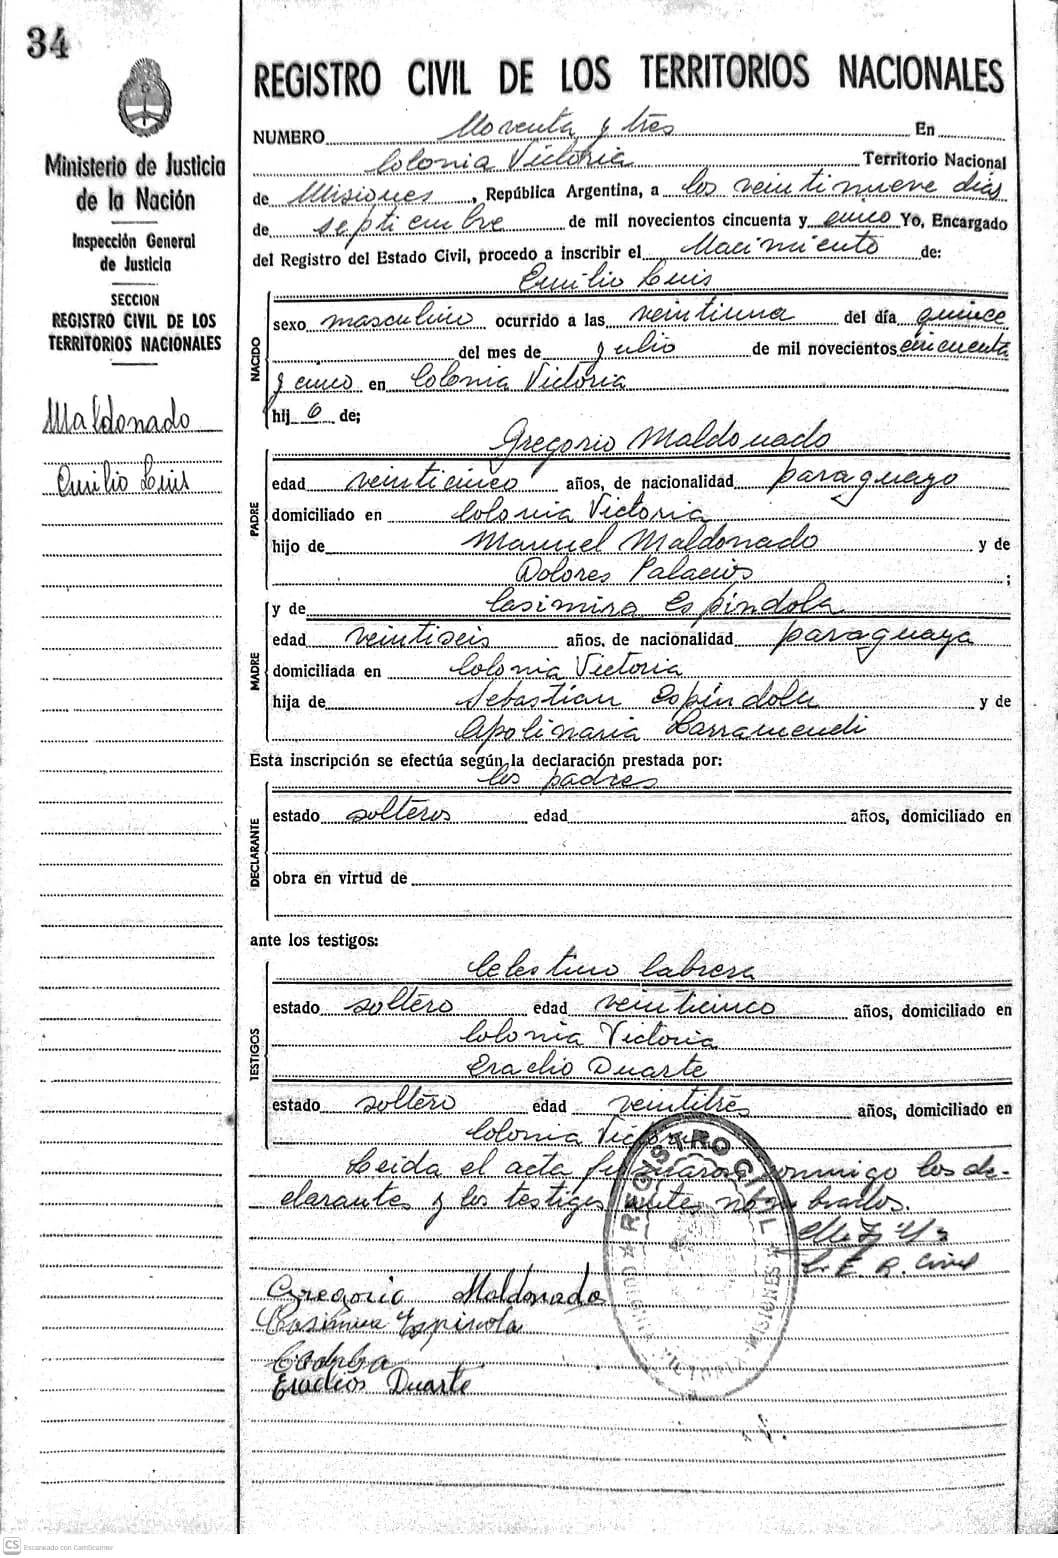 34
Ministerio de Justicia
de la Nación
Inspección General
de Justicia
SECCION
REGISTRO CIVIL DE LOS
TERRITORIOS NACIONALES
Maldonado
Emilio Luis
REGISTRO CIVIL DE LOS TERRITORIOS NACIONALES
NUMERO Noventa y tres En
Colonia Victoria Territorio Nacional
de Misiones, República Argentina, a los veintinueve días
de septiembre de mil novecientos cincuenta y cinco Yo, Encargado
del Registro del Estado Civil, procedo a inscribir el Nacimiento de:
Emilio Luis
NACIDO
sexo masculino ocurrido a las veintiuna del día quince
del mes de julio de mil novecientos cincuenta
y cinco en Colonia Victoria
hijo de;
Gregorio Maldonado
PADRE
edad veinticinco años, de nacionalidad paraguayo
domiciliado en Colonia Victoria
hijo de Manuel Maldonado y de
Dolores Palacios ;
y de Casimira Espíndola
MADRE
edad veintiseis años, de nacionalidad paraguaya
domiciliada en Colonia Victoria
hija de Sebastian Espíndola y de
Apolinaria Larramendi
Esta inscripción se efectúa según la declaración prestada por:
los padres
DECLARANTE
estado solteros edad años, domiciliado en
obra en virtud de
ante los testigos:
Celestino Cabrera
TESTIGOS
estado soltero edad veinticinco años, domiciliado en
Colonia Victoria
Eraclio Duarte
estado soltero edad veintitrés años, domiciliado en
Colonia Victoria
Leida el acta conmigo los de-
clarantes y los testigos antes nombrados.
E. R. Civil
REGISTRO CIVIL
COLONIA VICTORIA MISIONES
Gregorio Maldonado
Casimira Espinola
Eradios Duarte
CS Escaneado con CamScanner